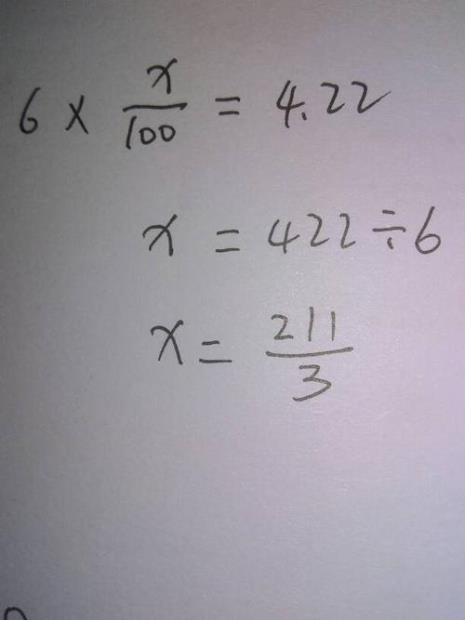 6 × x/100 = 4.22
x = 422 ÷ 6
x = 211/3